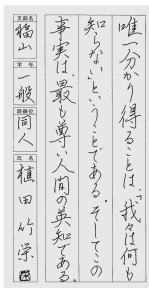 唯一分かり得ることは、「我々は何も
知らない」ということである。そしてこの
事実は、最も尊い人間の英知である。
支部名
福山
学年
一般
段級位
同人
氏名
植田竹栄